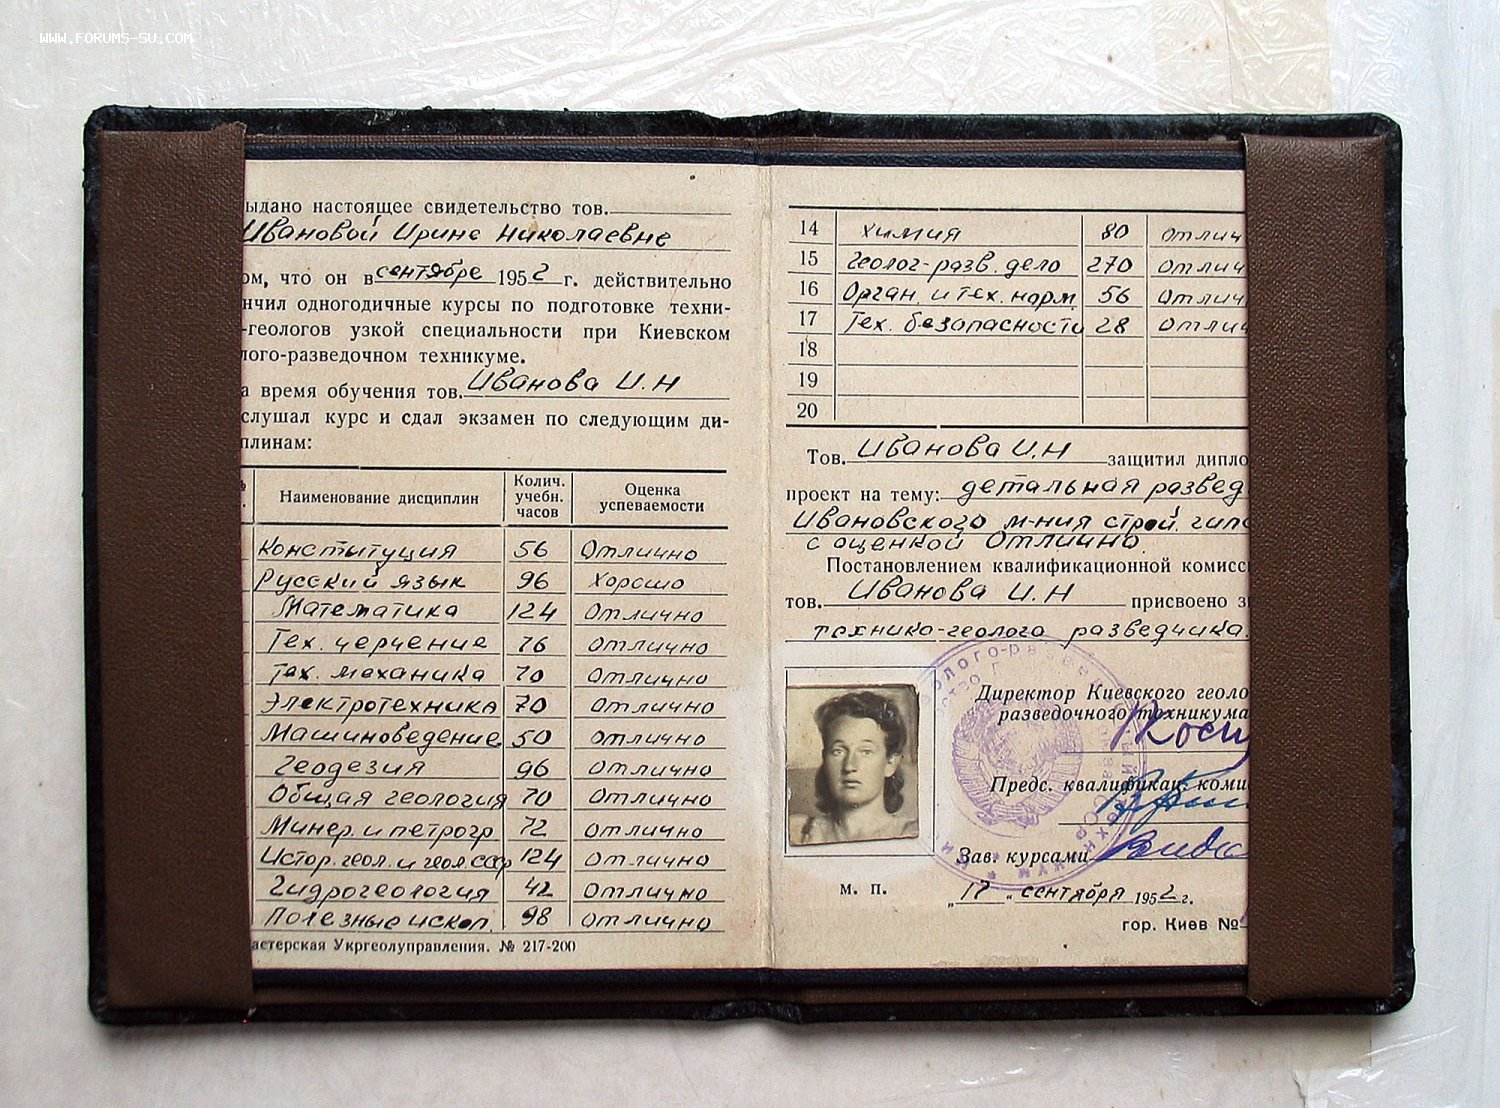 WWW.FORUMS-SU.COM
ыдано настоящее свидетельство тов.
Ивановой Ирине Николаевне
ом, что он в сентябре 1952 г. действительно
нчил одногодичные курсы по подготовке техни-
-геологов узкой специальности при Киевском
лого-разведочном техникуме.
а время обучения тов. Иванова И.Н
слушал курс и сдал экзамен по следующим ди-
плинам:
Наименование дисциплин Колич. учебн. часов Оценка успеваемости
Конституция 56 Отлично
Русский язык 96 Хорошо
Математика 124 Отлично
Тех. черчение 76 Отлично
Тех. механика 70 Отлично
Электротехника 70 Отлично
Машиноведение 50 Отлично
Геодезия 96 Отлично
Общая геология 70 Отлично
Минер. и петрогр 72 Отлично
Истор. геол. и геол СССР 124 Отлично
Гидрогеология 42 Отлично
Полезные ископ. 98 Отлично
астерская Укргеолуправления. № 217-200
14 Химия 80 Отлич
15 Геолог-разв. дело 270 Отлич
16 Орган. и тех. норм. 56 Отлич
17 Тех. безопасности 28 Отлич
18
19
20
Тов. Иванова И.Н защитил дипло
проект на тему: детальная развед
Ивановского м-ния строй. гипс
с оценкой Отлично.
Постановлением квалификационной комисс
тов. Иванова И.Н присвоено з
технико-геолога разведчика.
Директор Киевского геоло
разведочного техникума
Предс. квалификац. коми
Зав. курсами
м. п.
„17" сентября 1952 г.
гор. Киев №